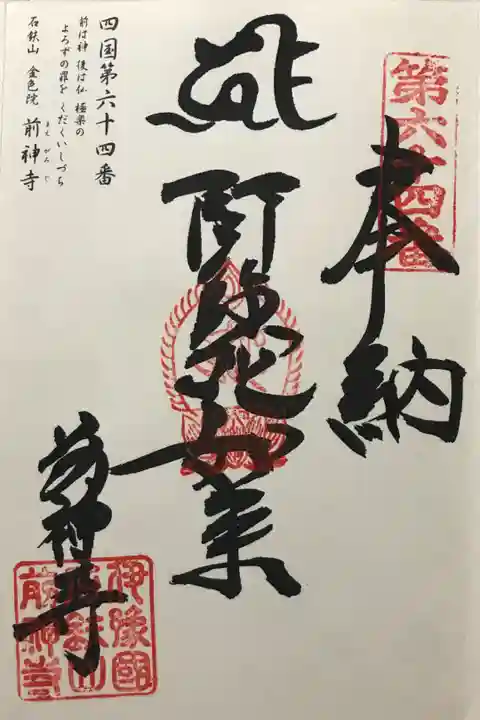 第六十四番
奉納
阿弥陀如来
前神寺
伊豫國
石鈇山
前神寺
四国第六十四番
前は神 後は仏 極楽の
よろずの罪を くだくいしづち
石鈇山 金色院 前神寺
まえ がみ じ